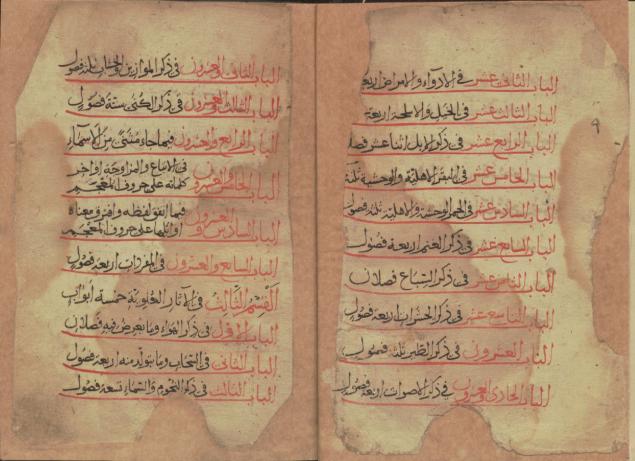 الباب الثاني عشر في الادواء والامراض اربعة
الباب الثالث عشر في الخيل والاسلحة اربعة
الباب الرابع عشر في ذكر الابل اثنا عشر فصلا
الباب الخامس عشر في البقر الاهلية والوحشية ثلثة
الباب السادس عشر في الحمر الوحشية والاهلية ثلثة فصول
الباب السابع عشر في ذكر الغنم اربعة فصول
الباب الثامن عشر في ذكر السباع فصلان
الباب التاسع عشر في ذكر الحشرات اربعة فصول
الباب العشرون في ذكر الطير ثلثة فصول
الباب الحادي والعشرون في ذكر الاصوات اربعة فصول
الباب الثاني والعشرون في ذكر الموازين والحساب ثلثة فصول
الباب الثالث والعشرون في ذكر الكنى ستة فصول
الباب الرابع والعشرون فيما جاء مثنى من الاسماء
الباب الخامس والعشرون في الاتباع والمزاوجة اواخر
كلماته على حروف المعجم
الباب السادس والعشرون فيما اتفق لفظه وافترق معناه
اوائلها على حروف المعجم
الباب السابع والعشرون في المفردات اربعة فصول
القسم الثالث في الآثار العلوية خمسة أبواب
الباب الاول في ذكر الهواء وما يعرض فيه فصلان
الباب الثاني في السحاب وما يتولد منه اربعة فصول
الباب الثالث في ذكر النجوم والسماء تسعة فصول